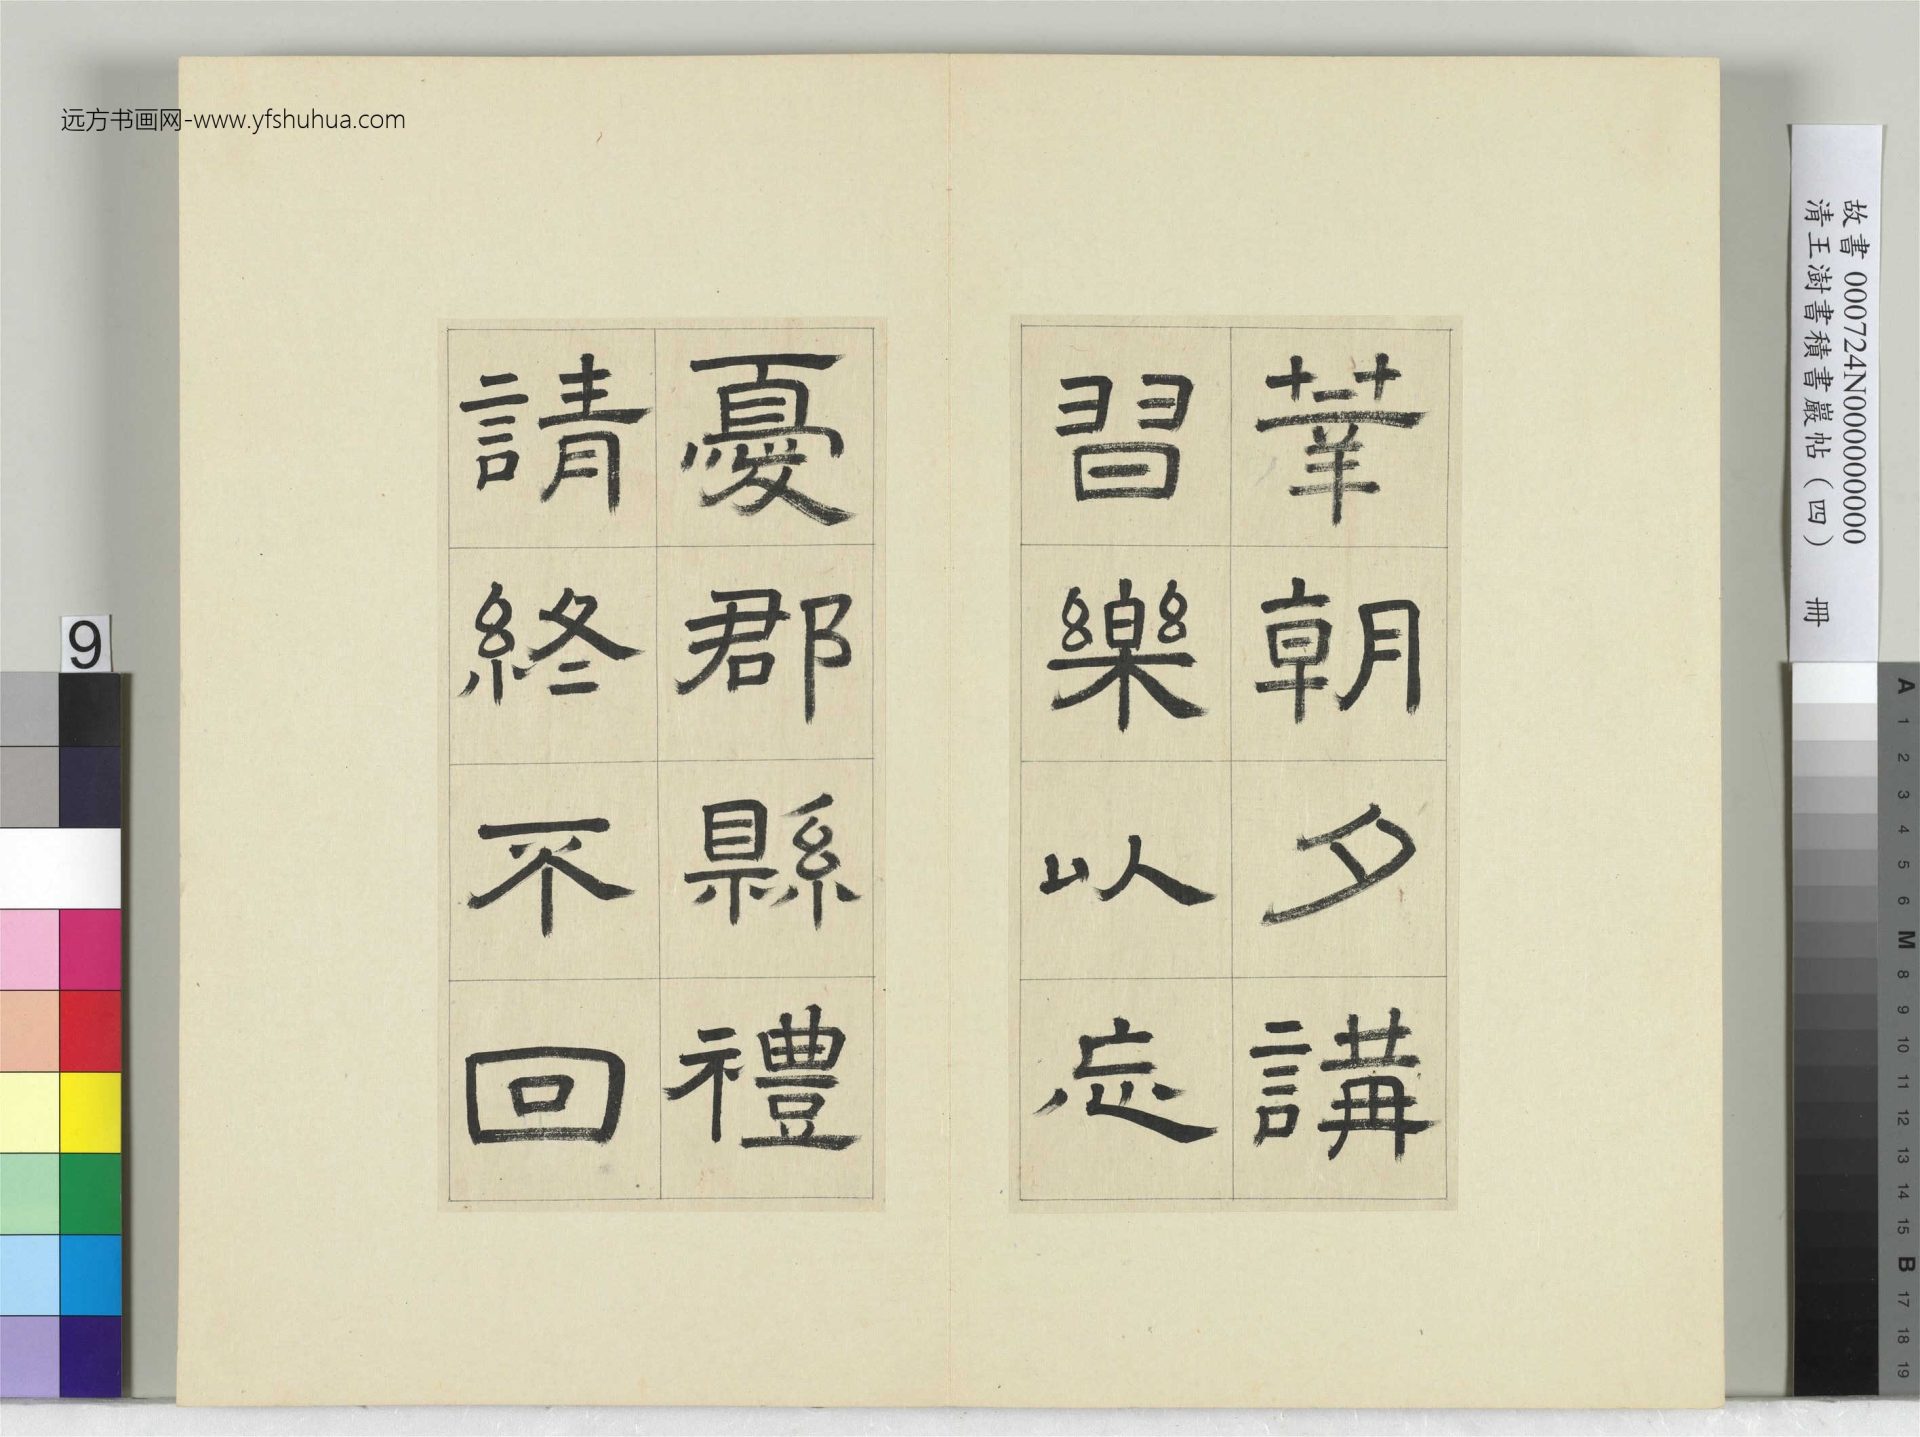 远方书画网-www.yfshuhua.com
莘朝夕講
習樂以忘
憂郡縣禮
請終不回
故書 000724N000000000
清王澍書積書巖帖（四） 冊
9
A
1
2
3
4
5
6
M
8
9
10
11
12
13
14
15
B
17
18
19